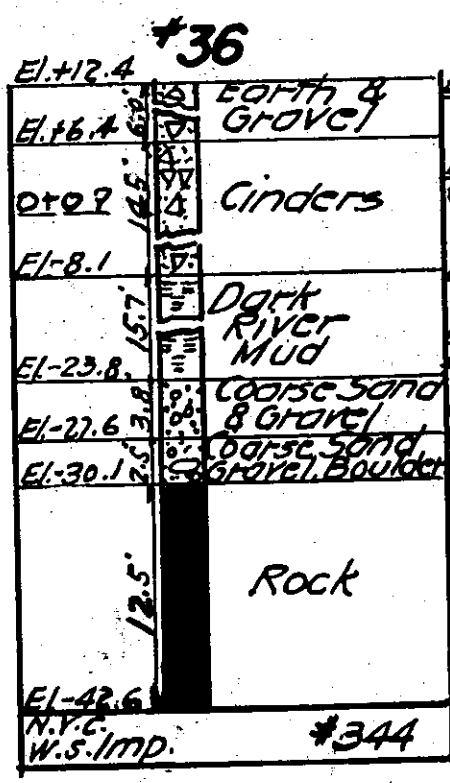 #36
El.+12.4
6.0' Earth &
Gravel
El.+6.4
14.5' Cinders
0+09
El-8.1
15.7' Dark
River
Mud
El.-23.8
3.8' Coarse Sand
& Gravel
El-27.6
2.5' Coarse Sand
Gravel, Boulder
El-30.1
12.5' Rock
El-42.6
N.Y.C.
W.S. Imp. #344